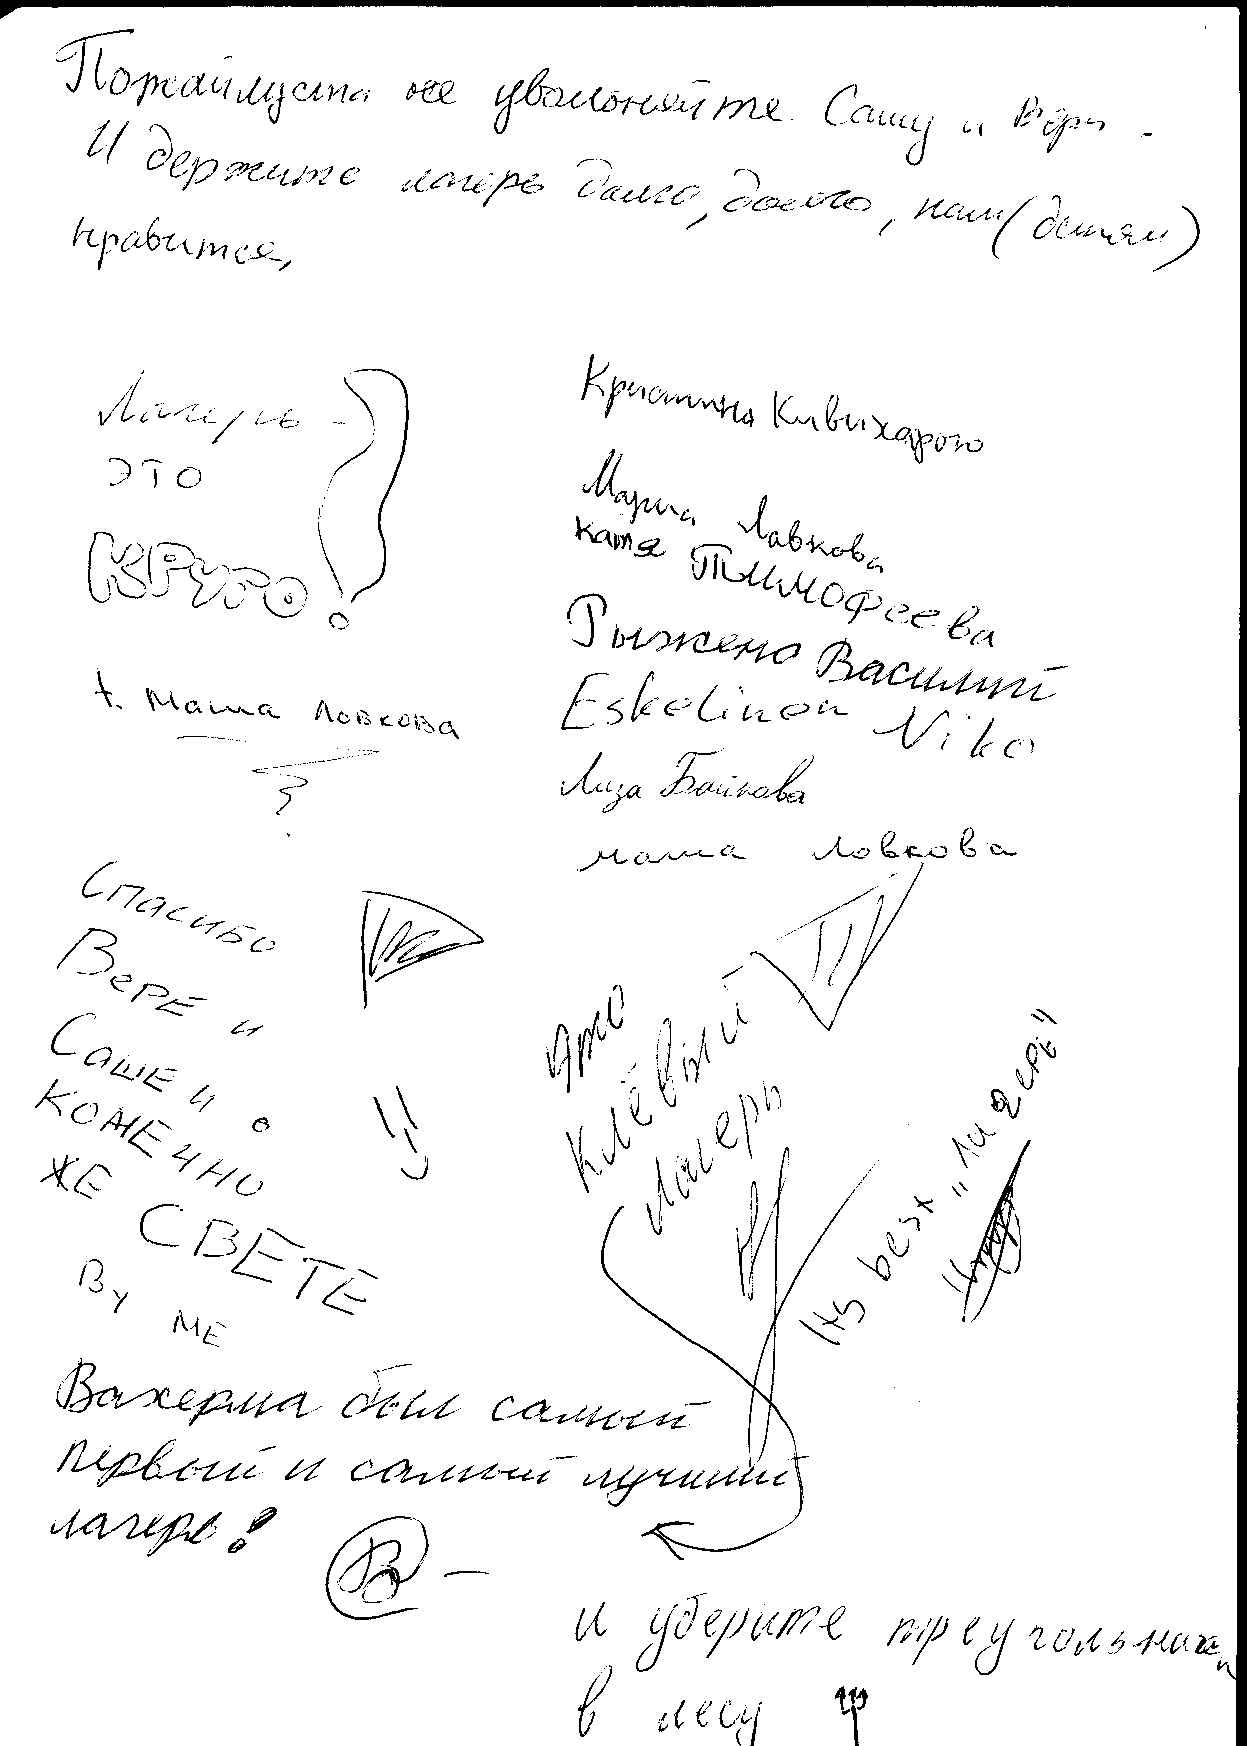 Пожайлуста не увольняйте Сашу и Веру.
И держите лагерь долго, долго, нам (детям)
нравится,
Лагерь -
ЭТО
КРУТО!
t. Маша Ловкова
Кристина Кивихарью
Маша Ловкова
Катя Тимофеева
Рыжено Василий
Eskelinen Niko
Лиза Байкова
маша Ловкова
СПАСИБО
ВЕРЕ И
САШЕ И
КОНЕЧНО
ЖЕ СВЕТЕ
BY ME
Это
клёвый
лагерь
Из всех „лагерь“
Вахерма был самый
первый и самый лучший
лагерь!
В -
и уберите треугольники
в лесу